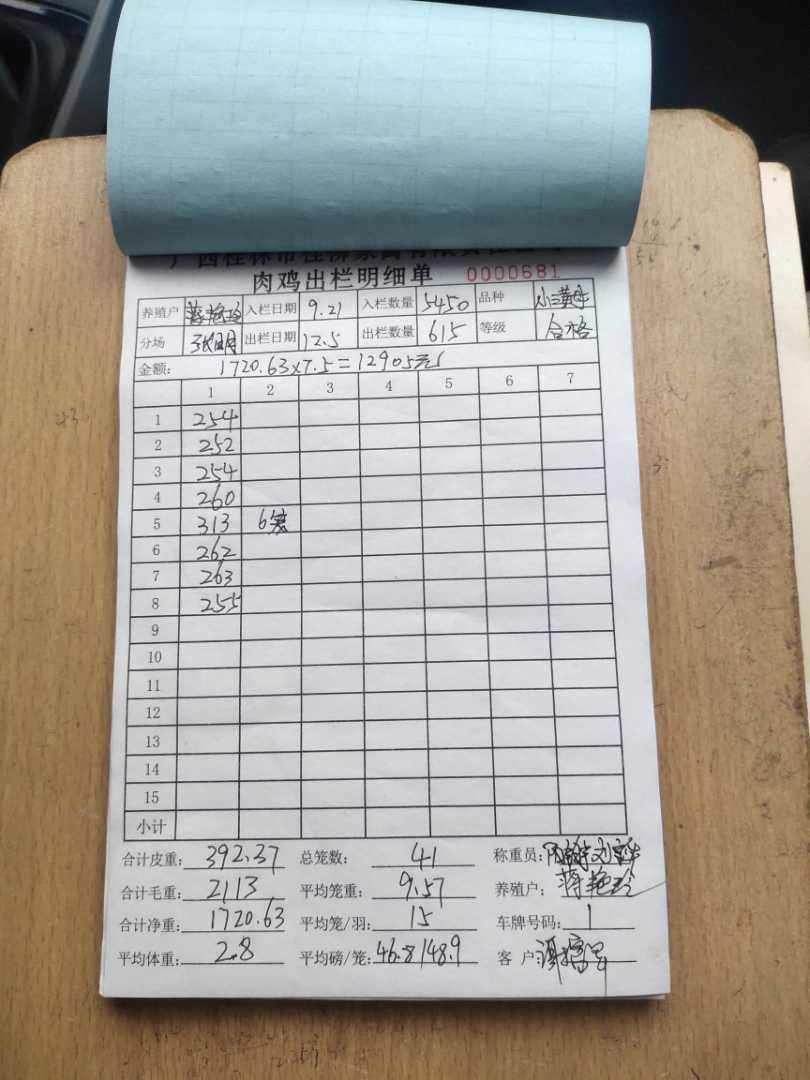 肉鸡出栏明细单 0000681
养殖户 蒋艳玲 入栏日期 9.21 入栏数量 5450 品种
分场 出栏日期 12.5 出栏数量 615 等级 合格
金额: 1720.63×7.5=12905元
1 2 3 4 5 6 7
1 254
2 252
3 254
4 260
5 313 6笼
6 262
7 263
8 255
9
10
11
12
13
14
15
小计
合计皮重: 392.37 总笼数: 41 称重员:
合计毛重: 2113 平均笼重: 9.57 养殖户: 蒋艳玲
合计净重: 1720.63 平均笼/羽: 15 车牌号码: 1
平均体重: 2.8 平均磅/笼: 46.8/48.9 客户: